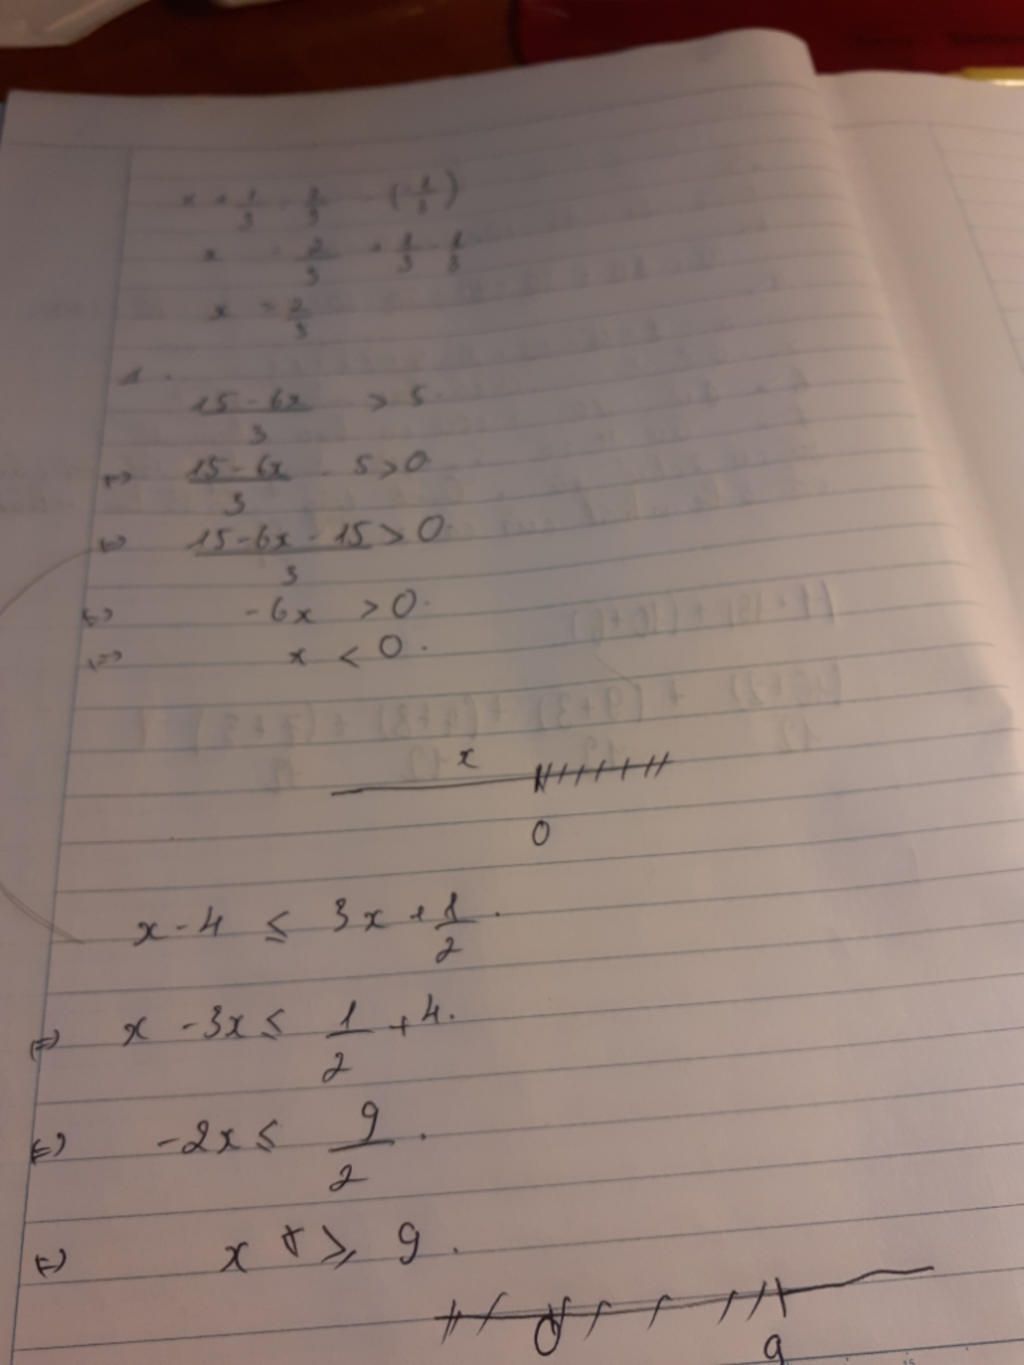 x + 1/3 = 2/3 - (-1/3)
x = 2/3 + 1/3 - 1/3
x = 2/3
1.
(15-6x)/3 > 5.
<=> (15-6x)/3 - 5 > 0
<=> (15-6x-15)/3 > 0
<=> -6x > 0.
<=> x < 0.
x
0
x - 4 ≤ 3x + 1/2.
<=> x - 3x ≤ 1/2 + 4.
<=> -2x ≤ 9/2.
<=> x ≥ 9.
0
9